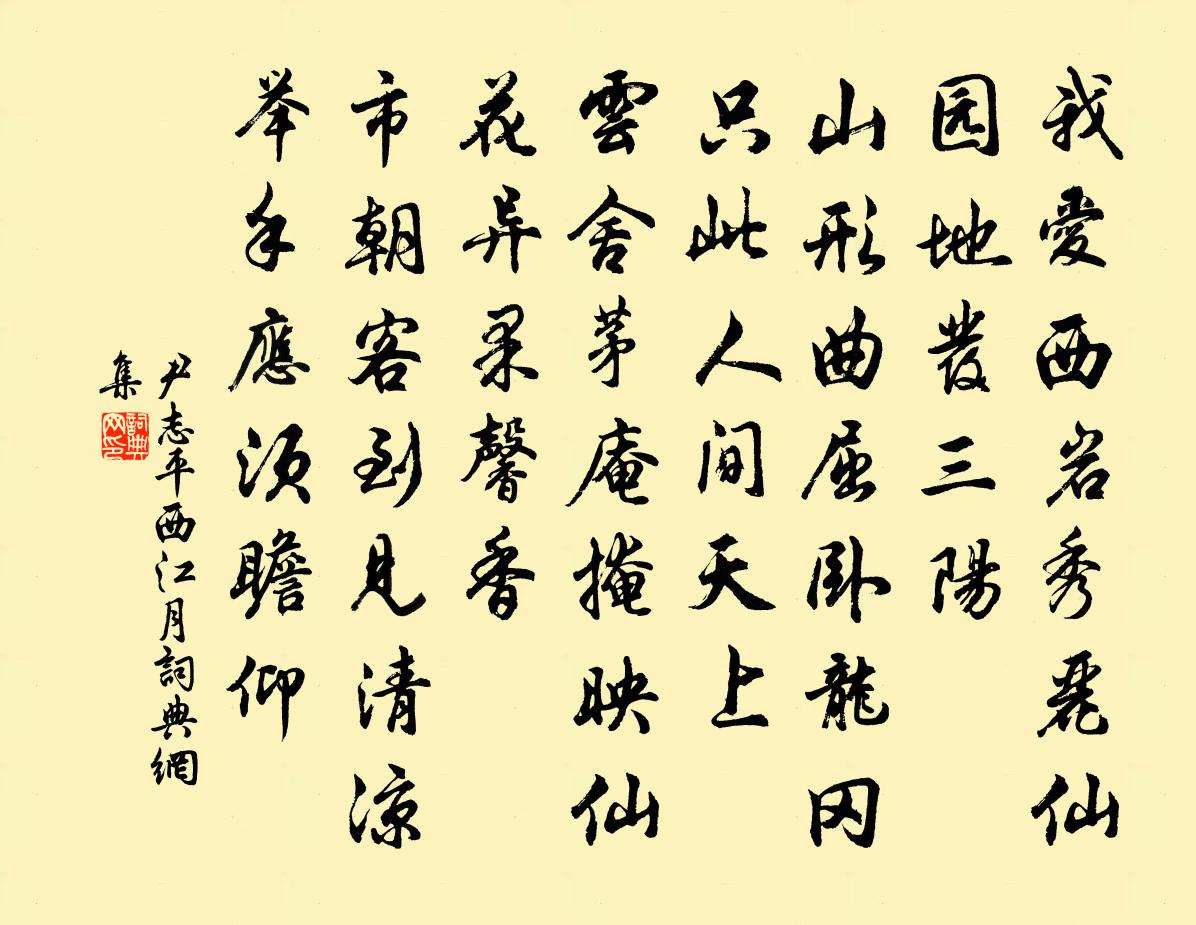 我愛西岩秀麗仙
园地發三陽
山形曲屈卧龍冈
只此人間天上
雲舍茅庵掩映仙
花异果馨香
市朝客到見清凉
举手應須瞻仰
尹志平西江月詞典網
集
詞典网印